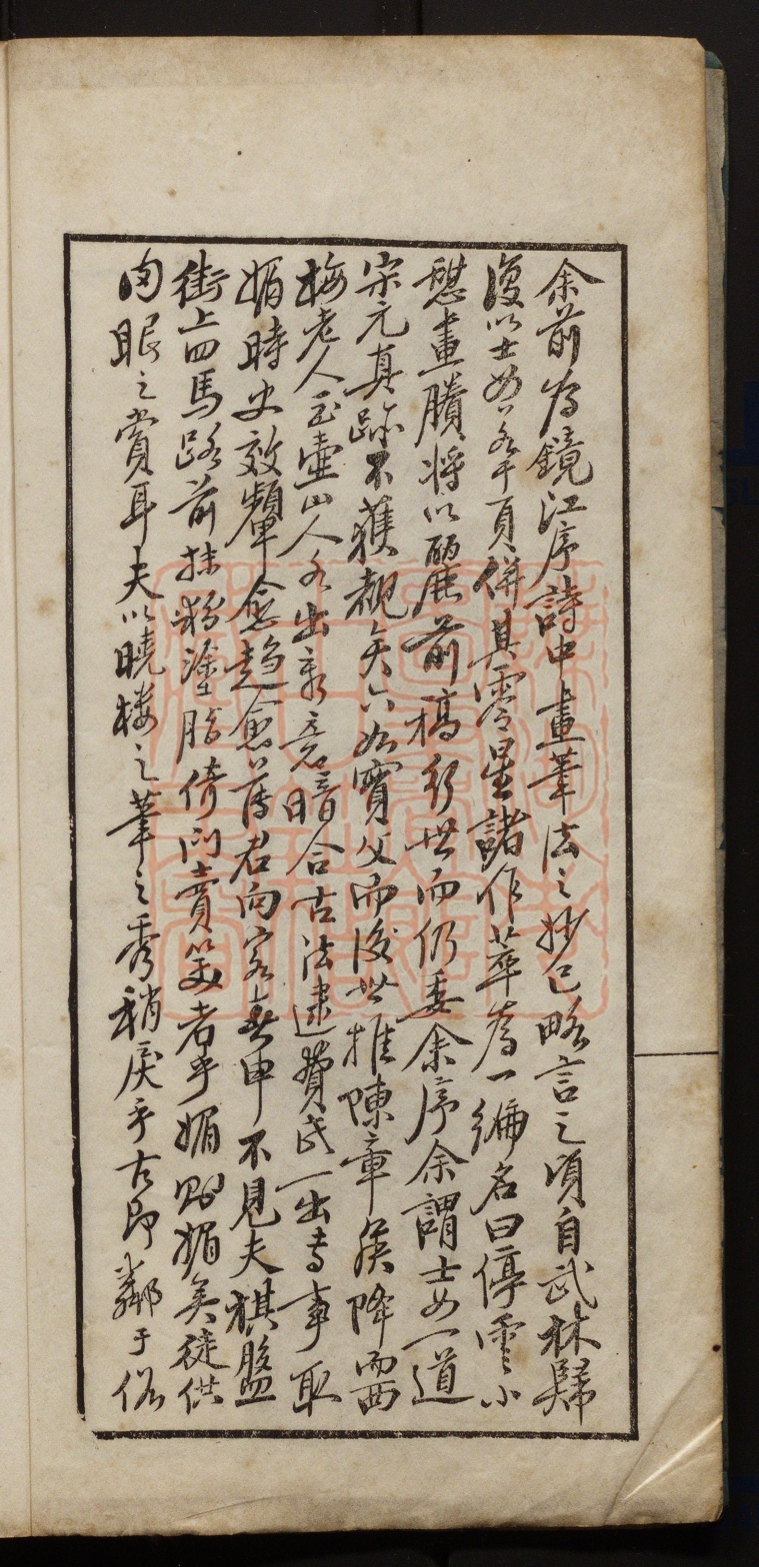 余前為鏡江序詩中畫筆法之妙已略言之頃自武林歸
復以士女若干頁併其零星諸作萃為一編名曰停雲小
憇畫賸將以麗前稿行世而仍委余序余謂士女一道
宋元真跡不獲覩矣六如實父而後世推陳章侯降而西
梅老人玉壺山人各出新意暗合古法逮費氏一出專事取
媚時史效顰愈趨愈薄君向客春申不見夫棋盤
街上四馬路前抹粉塗脂倚門賣笑者乎媚則媚矣徒供
肉眼之賞耳夫以曉樓之筆之秀稍戾乎古即鄰于俗